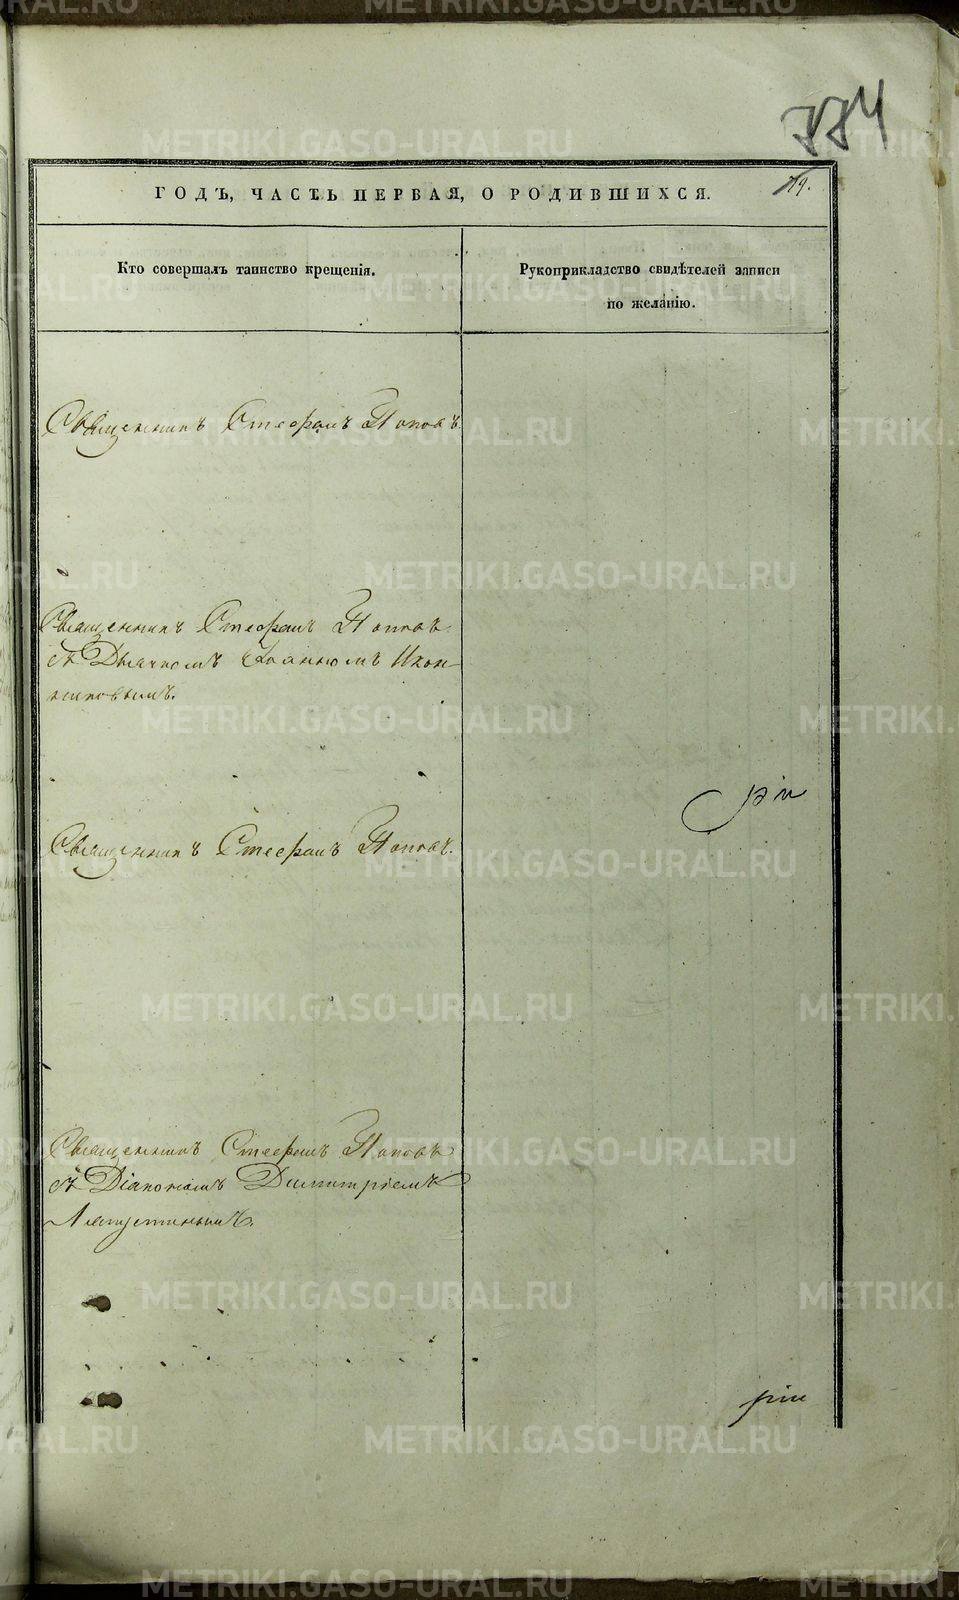 774
19.
ГОДЪ, ЧАСТЬ ПЕРВАЯ, О РОДИВШИХСЯ.
Кто совершалъ таинство крещенія.
Рукоприкладство свидѣтелей записи
по желанію.
Священникъ Стефанъ Поповъ.
Священникъ Стефанъ Поповъ
съ Дьячкомъ Іоанномъ Икон-
никовымъ.
Священникъ Стефанъ Поповъ.
Священникъ Стефанъ Поповъ
съ Діакономъ Димитріемъ
METRIKI.GASO-URAL.RU